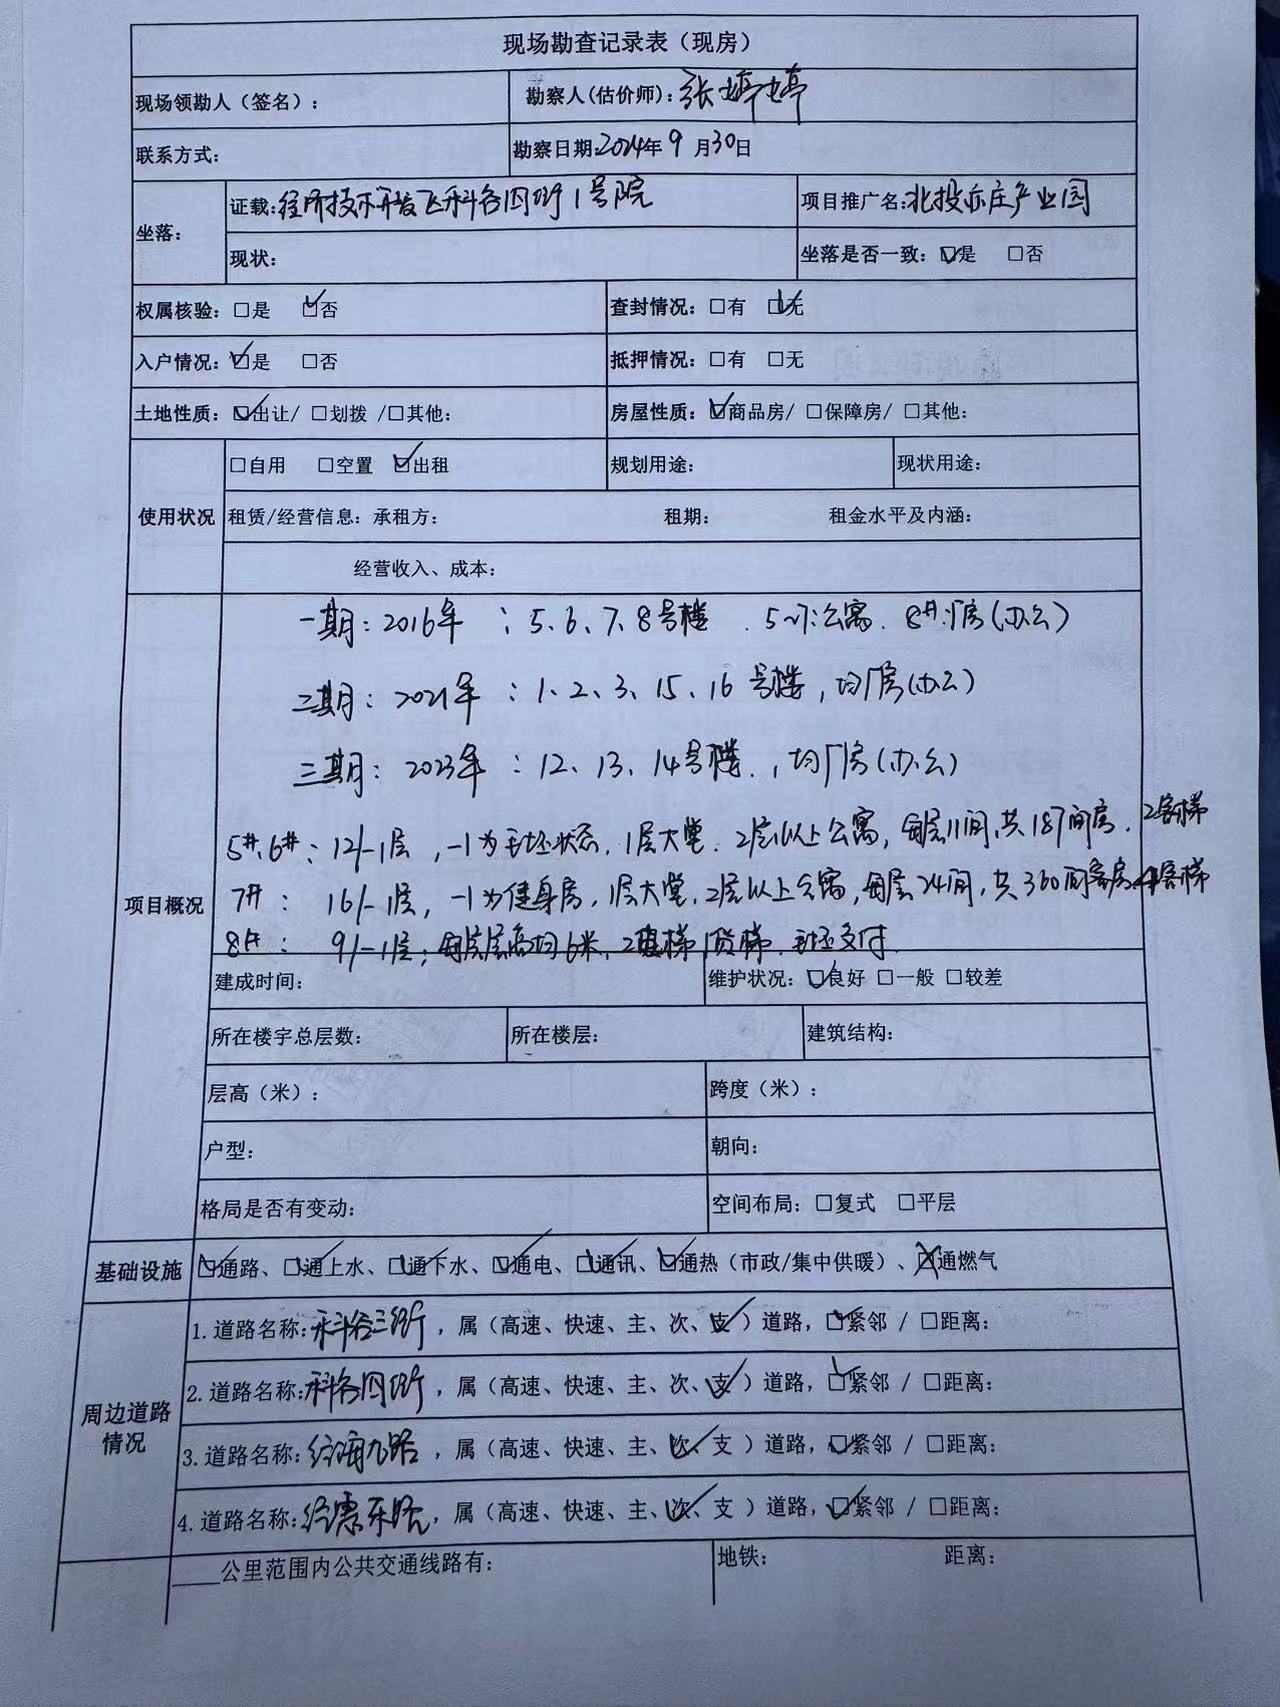 现场勘查记录表（现房）
现场领勘人（签名）：
勘察人(估价师)：张婷婷
联系方式：
勘察日期:2024年9月30日
坐落：
证载:经济技术开发区科谷四街1号院
项目推广名:北投亦庄产业园
现状：
坐落是否一致：☑是 □否
权属核验：□是 ☑否
查封情况：□有 ☑无
入户情况：☑是 □否
抵押情况：□有 □无
土地性质：☑出让/ □划拨 /□其他:
房屋性质：☑商品房/ □保障房/ □其他:
使用状况
□自用 □空置 ☑出租
规划用途：
现状用途：
租赁/经营信息：承租方： 租期： 租金水平及内涵：
经营收入、成本：
项目概况
一期：2016年 ：5、6、7、8号楼 . 5~7:公寓. 8#:厂房(办公)
二期：2021年 ：1、2、3、15、16 号楼，均厂房(办公)
三期：2023年 ：12、13、14号楼.，均厂房(办公)
5#、6#：12/-1层，-1为毛坯状态，1层大堂. 2层以上公寓，每层11间,共187间房. 2客梯
7#： 16/-1层，-1为健身房，1层大堂，2层以上公寓，每层24间，共360间客房 4客梯
8#： 9/-1层；每层层高均6米，2客梯1货梯. 毛坯交付.
建成时间：
维护状况：☑良好 □一般 □较差
所在楼宇总层数：
所在楼层：
建筑结构：
层高（米）：
跨度（米）：
户型：
朝向：
格局是否有变动：
空间布局：□复式 □平层
基础设施
☑通路、☑通上水、☑通下水、☑通电、☑通讯、☑通热（市政/集中供暖）、☒通燃气
周边道路情况
1.道路名称:科谷三街，属（高速、快速、主、次、支）道路，☑紧邻 / □距离：
2.道路名称:科谷四街，属（高速、快速、主、次、支）道路，☑紧邻 / □距离：
3.道路名称:经海九路，属（高速、快速、主、次、支）道路，☑紧邻 / □距离：
4.道路名称:经惠东路，属（高速、快速、主、次、支）道路，☑紧邻 / □距离：
____公里范围内公共交通线路有：
地铁： 距离：